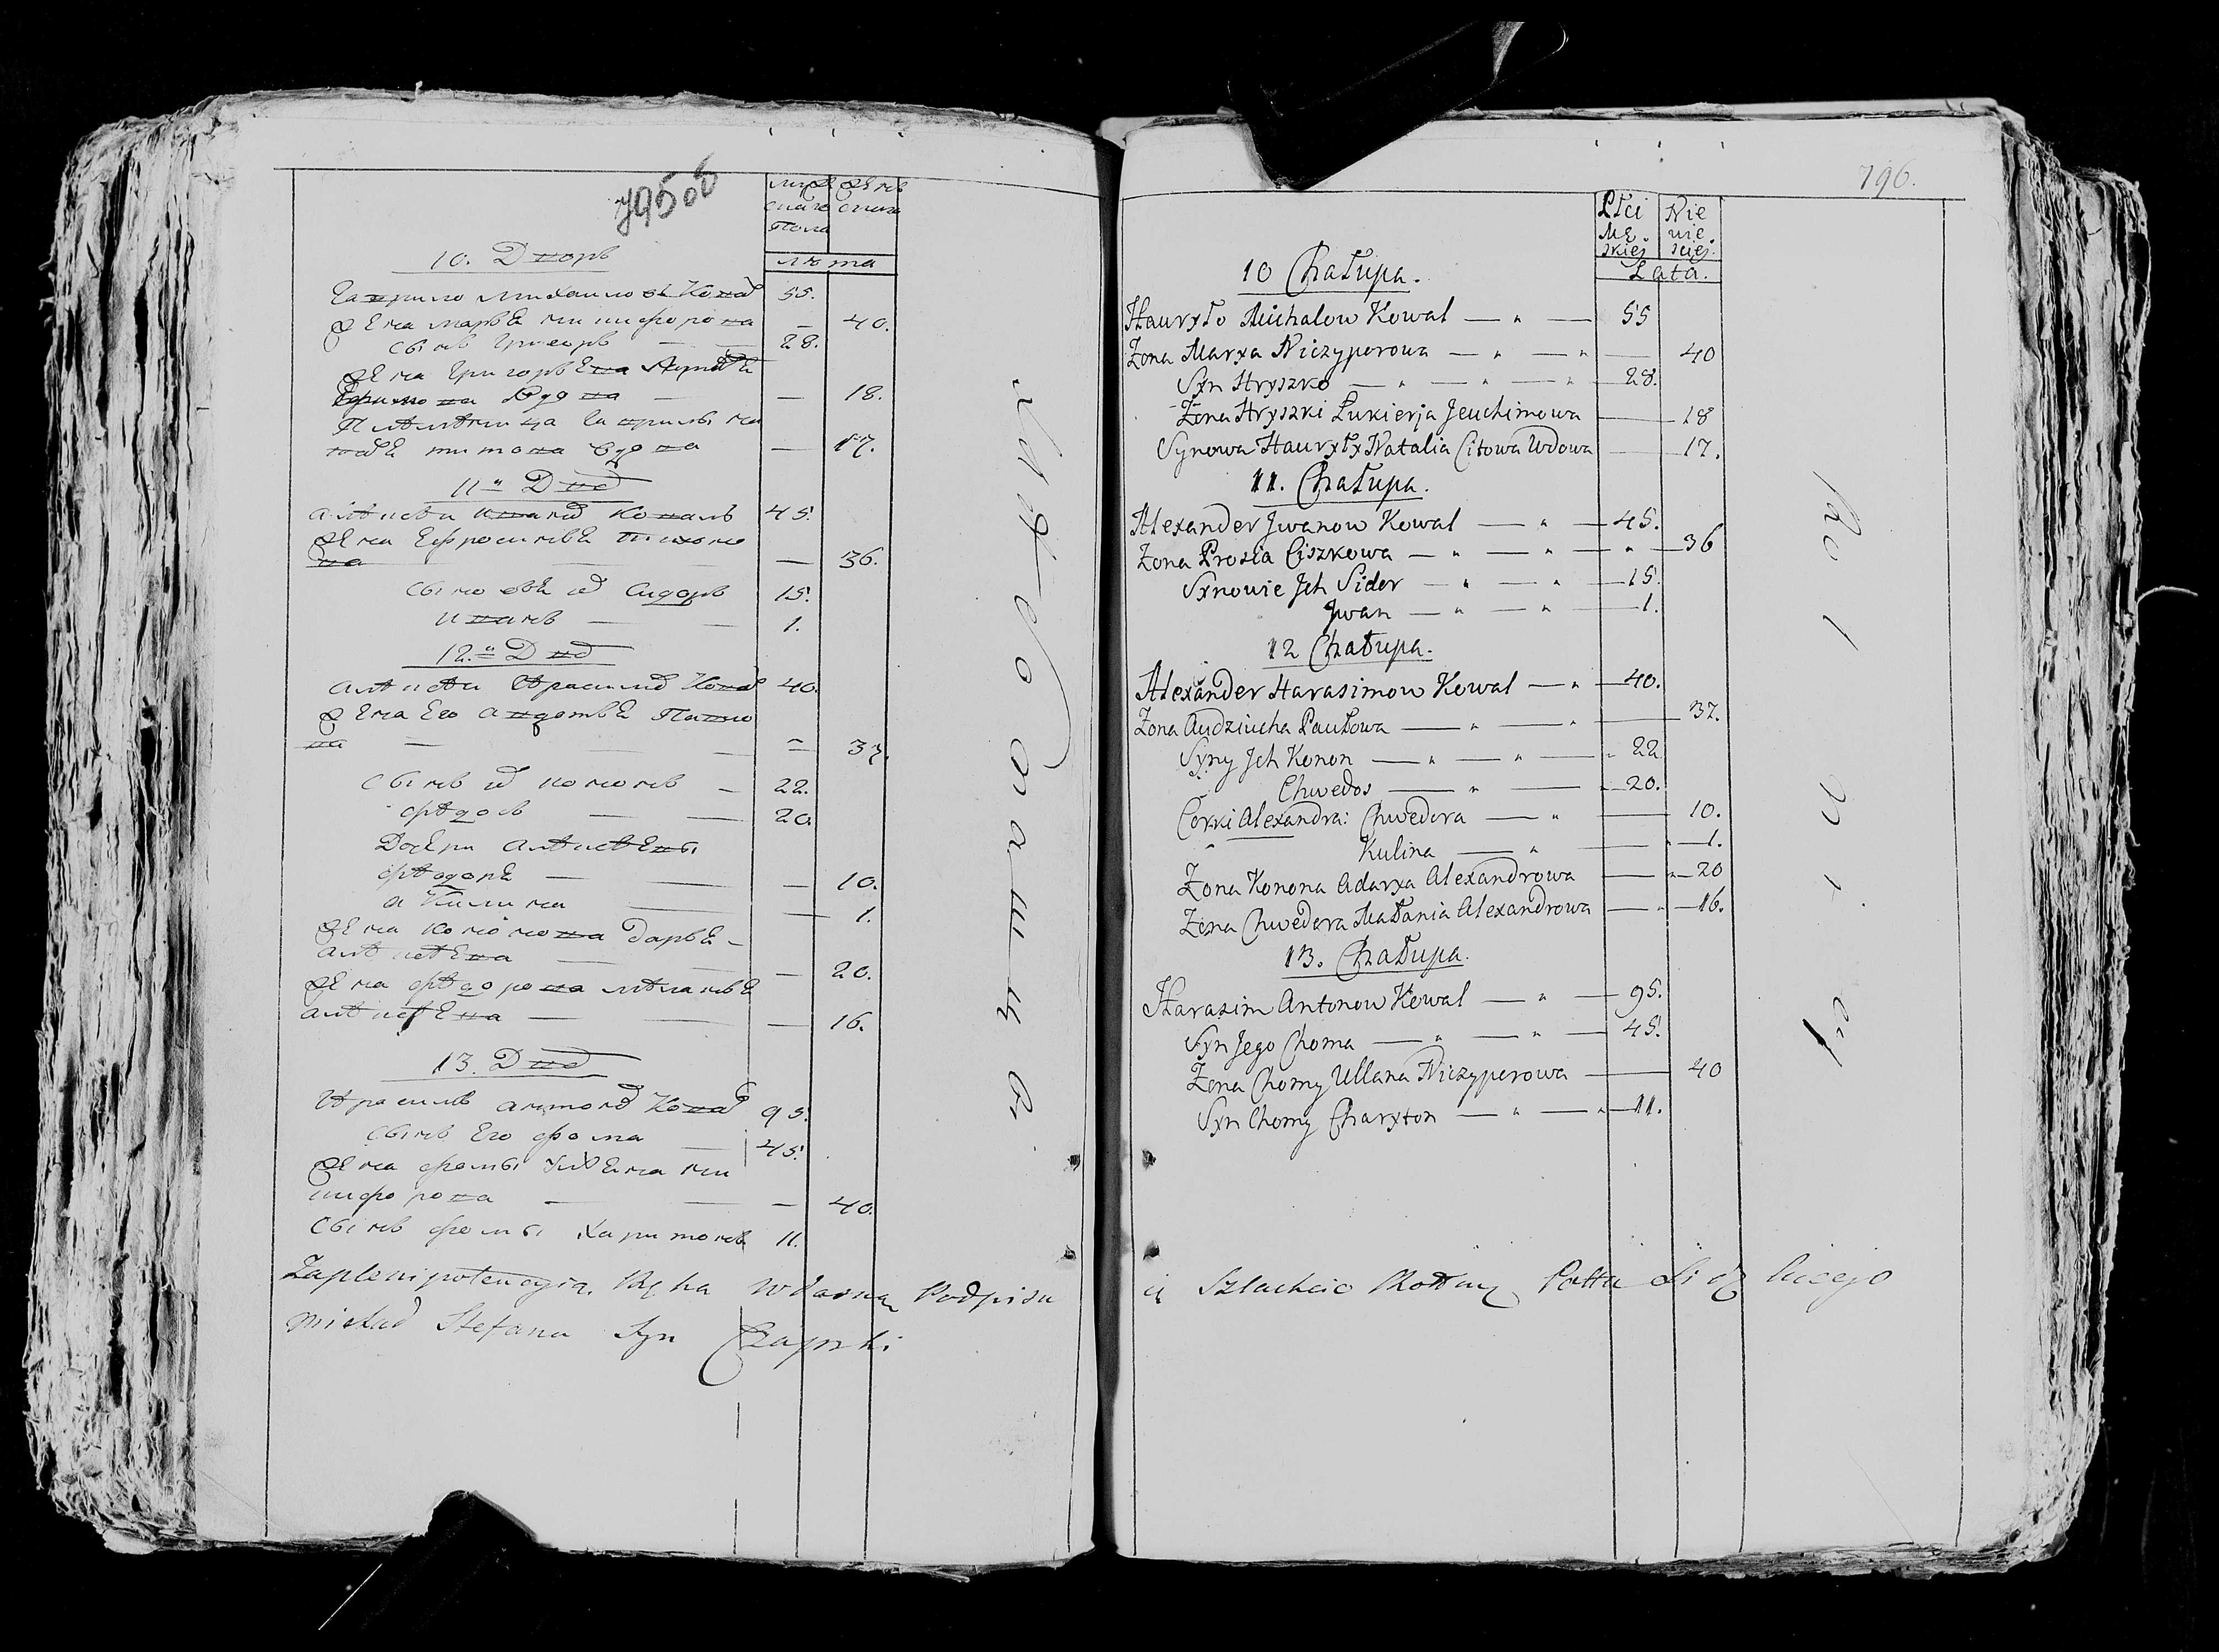 795об
муже
скаго
пола
женс
скаго
лѣта
10. Дворъ
Гаврило Михайловъ Ковал 55.
жена Марья Никифорова — 40.
сынъ Григоръ — 28.
жена Григорьева
Ефимова — 18.
Гаврилы На
талья Титова вдова — 17.
11й Двор
Алексей Иванов Коваль 45.
жена Ефросинья Тихоно
ва — 36.
сыновья их Сидоръ 15.
Иванъ — 1.
12й Двор
Алексей Герасимов Ковал 40.
жена его Авдотья Павло
ва — 37.
сынъ их Кононъ — 22.
Федосъ — 20.
Дочери Алексеевы
Федоря — 10.
Акилина — 1.
жена Кононова Дарья
Алексеева — 20.
жена Федорова Меланья
Алексеева — 16.
13. Двор
Герасимъ Антонов Ковал 95.
сынъ его Фома — 45.
жена Фомы Ульяна Ни
кифорова — 40.
сынъ Фомы Харитонъ 11.
Zaplenipotencyią Ręką Własną Podpisu
Michał Stefana Syn Czapski
796.
Płci
Mę.
skiej
Nie
wie.
sciej.
Lata.
10 Chałupa.
Hauryło Michałow Kowal — " — 55
Żona Marya Niczyperowa — " — " — 40
Syn Hryszko — " — " — " — 28.
Żona Hryszki Łukierja Jeuchimowa — 18
Synowa Hauryły Natalia Citowa Wdowa — 17.
11. Chałupa.
Alexander Jwanow Kowal — " — 45.
Żona Prosia Ciszkowa — " — " — " — 36
Synowie Jch Sidor — " — " — 15.
Jwan — " — " — 1.
12 Chałupa.
Alexander Harasimow Kowal — " — 40.
Żona Audziucha Paułowa — " — " — 37.
Syny Jch Konon — " — " — 22
Chwedos — " — 20.
Corki Alexandra: Chwedora — " — 10.
Kulina — " — " — 1.
Zona Konona Adarya Alexandrowa — " — 20
Zona Chwedora Małania Alexandrowa — " — 16.
13. Chałupa.
Harasim Antonow Kowal — " — 95.
Syn Jego Choma — " — " — 45.
Zona Chomy Ullana Niczyperowa — 40
Syn Chomy Charyton — " — " — 11.
Szlachcic